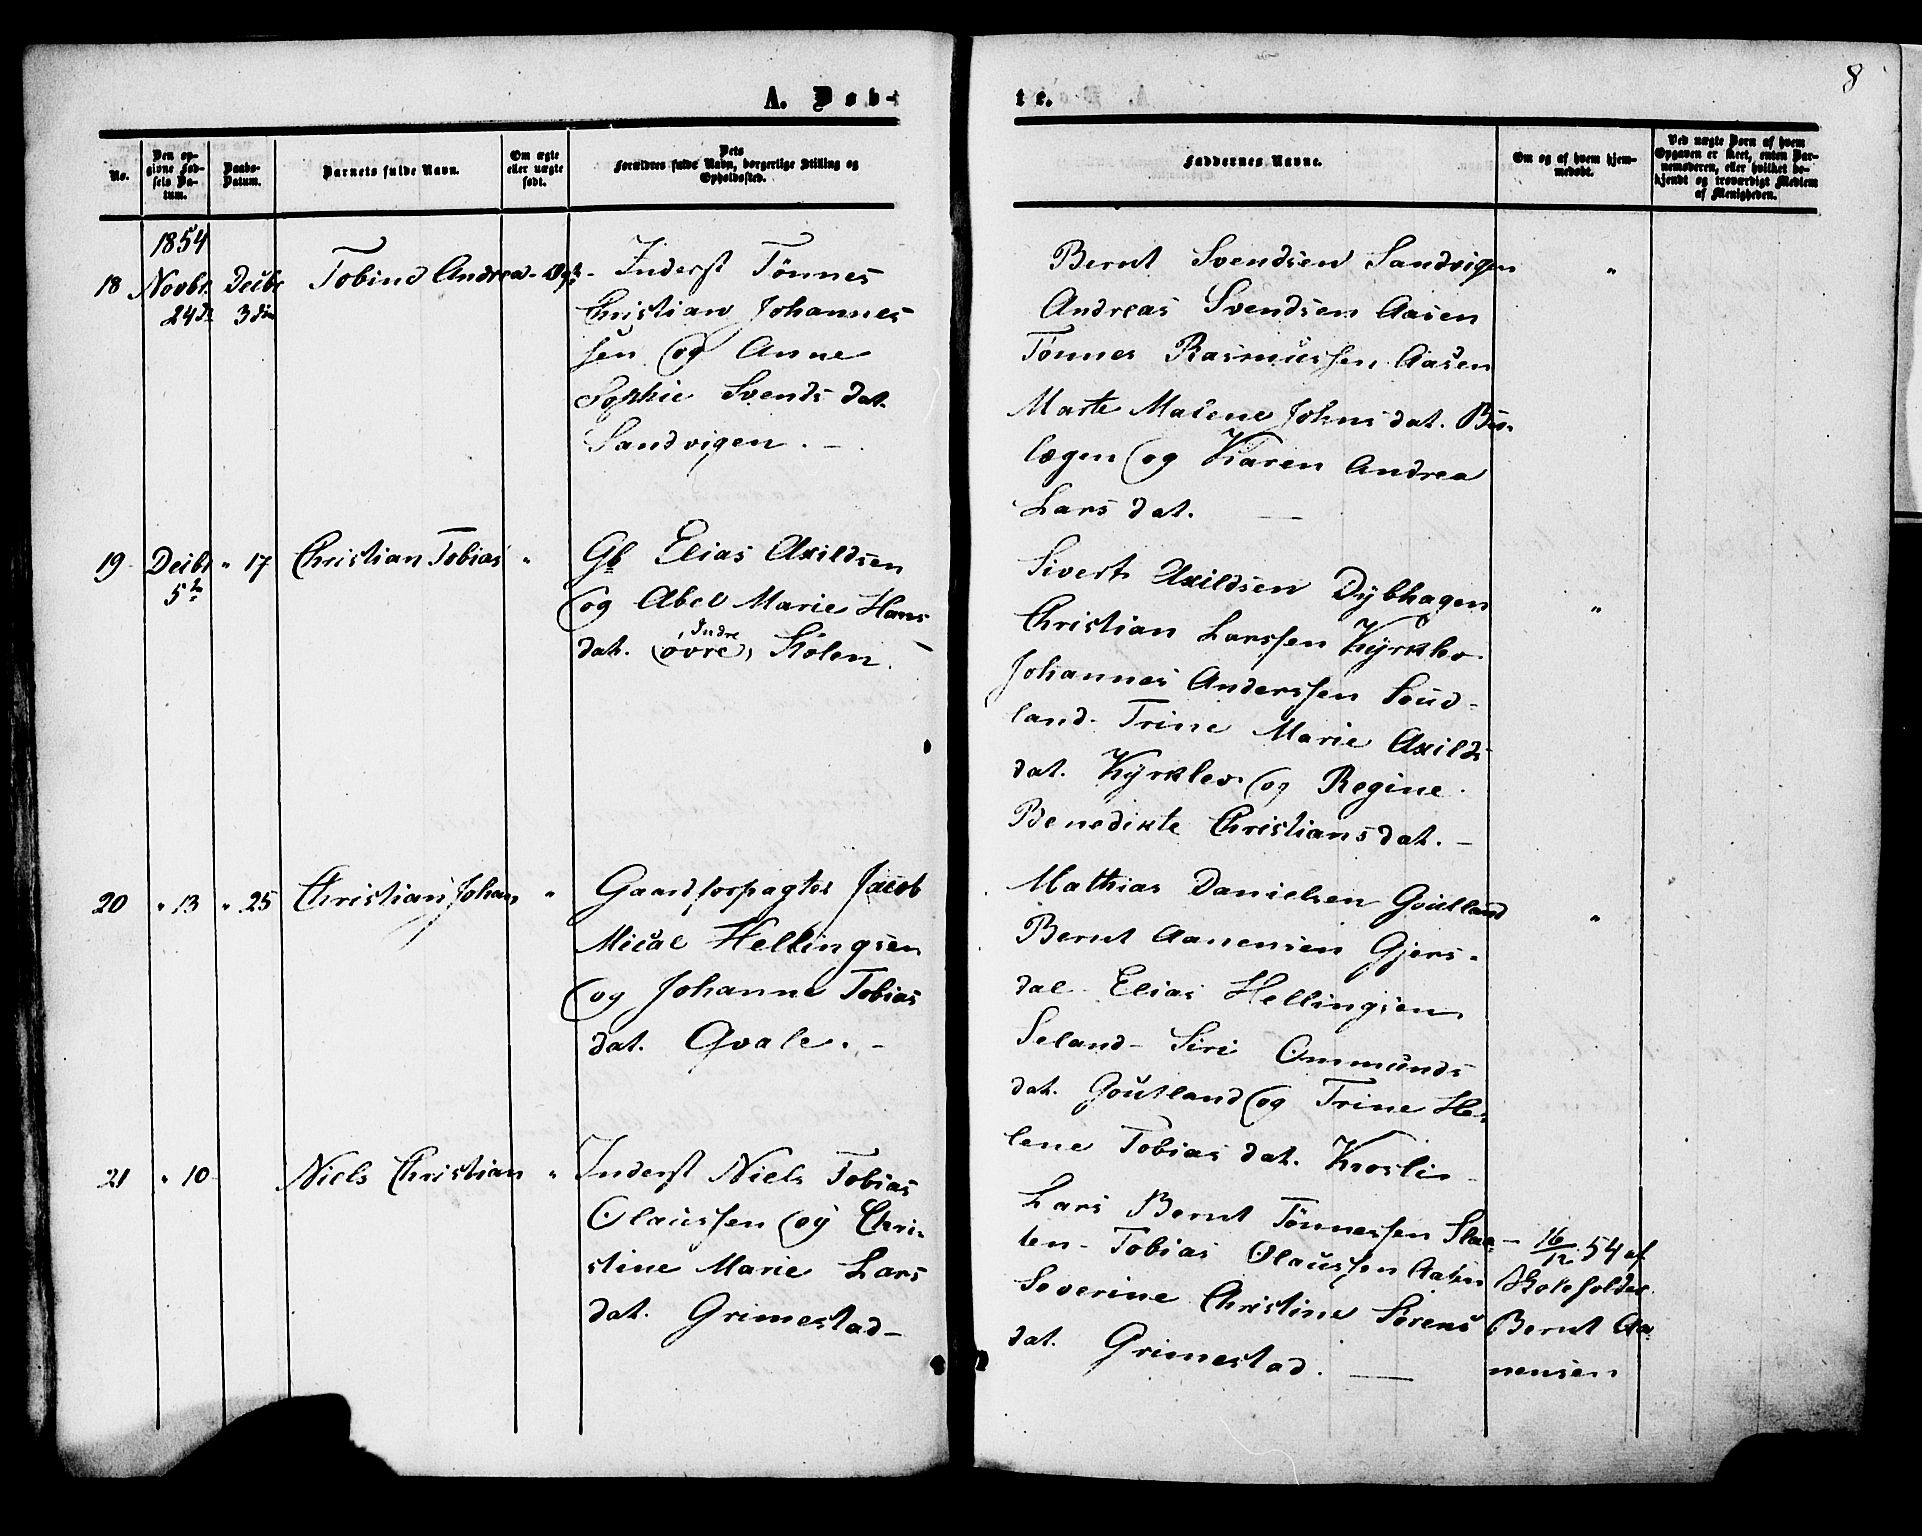 8
A. Døb-
te.
No.
Den op-
givne Fød-
sels Da-
tum.
Daabs-
Datum.
Barnets fulde Navn.
Om ægte
eller uægte
født.
Dets
Forældres fulde Navn, borgerlige Stilling og
Opholdssted.
Faddernes Navne.
Om og af hvem hjem-
medøbt.
Ved uægte Børn af hvem
Opgaven er skeet, enten Bar-
nemoderen, eller hvilket be-
kjendt og troværdigt Medlem
af Menigheden.
1854
18 Novbr. Decbr
24de 3die
Andrea - Ægte
Inderst Tönnes
Christian Johannes
sen og Anne
Sophie Svends dat.
Sandvigen. -
Bernt Svendsen Sandvigen "
Andreas Svendsen Aasen
Tönnes Rasmussen Aasen
Marte Malene Johns dat.
lægen og Karen Andrea
Lars dat.
19 Decbr " 17 Christian Tobias "
5te
Gb Elias Axildsen
og Abel Marie Hans
dat. (övre) Indre Stölen.
Sivert Axildsen Dybhagen "
Christian Larssen Kyrklev.
Johannes Anderssen
land - Trine Marie Axilds
dat. Kyrklev og Regine
Benedikte Christians dat. -
20 " 13 " 25 Christian Johan "
Gaardforpagter Jacob
Micael Hellingsen
og Johanne Tobias
dat. Qvale. -
Mathias Danielsen Goutland "
Bernt Aanensen Gjers-
dal - Elias Hellingsen
Seland - Siri Ommunds
dat. Goutland og Trine He-
lene Tobias dat.
21 " 10 - Niels Christian "
Inderst Niels Tobias
Olaussen og Chri-
stine Marie Lars
dat. Grimestad -
Lars Bernt Tönnessen Slaa-
ten - Tobias Olaussen
Severine Christine Sörens
dat. Grimestad.
- 16/12 54 af
Skoleholder
Bernt Aa-
nensen